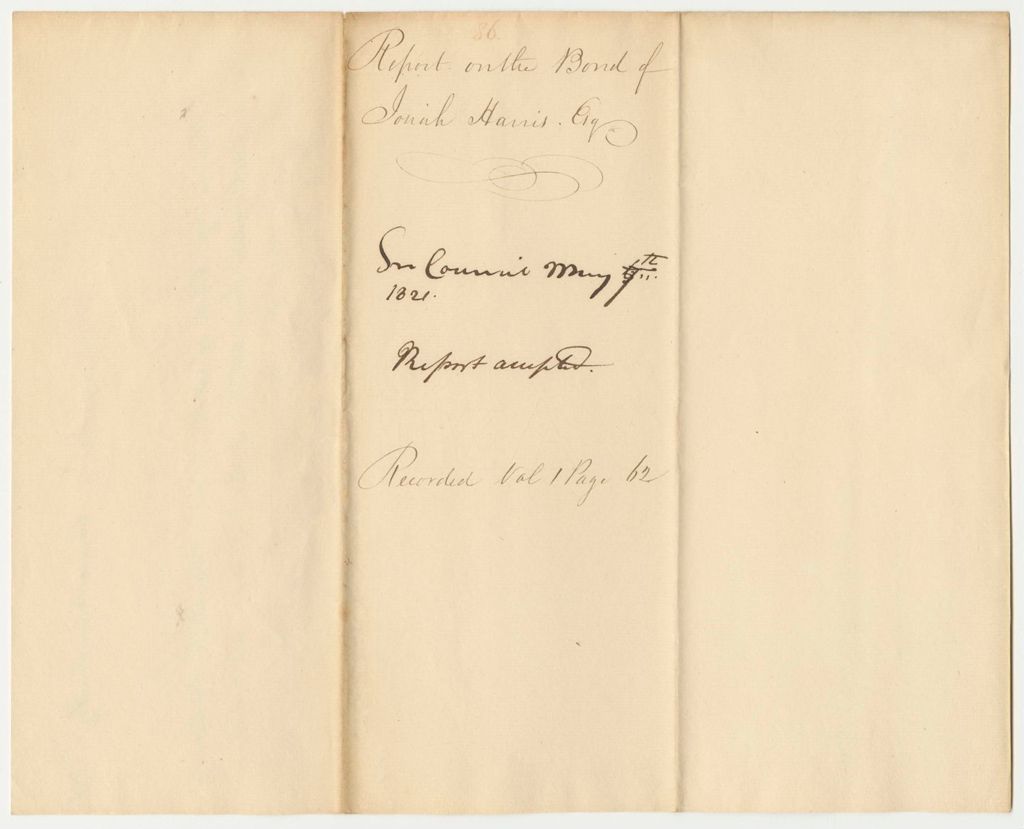 86.
Report on the Bond of
Josiah Harris. Esq
In Council May
1821.
Report accepted.
Recorded Vol 1 Page 62